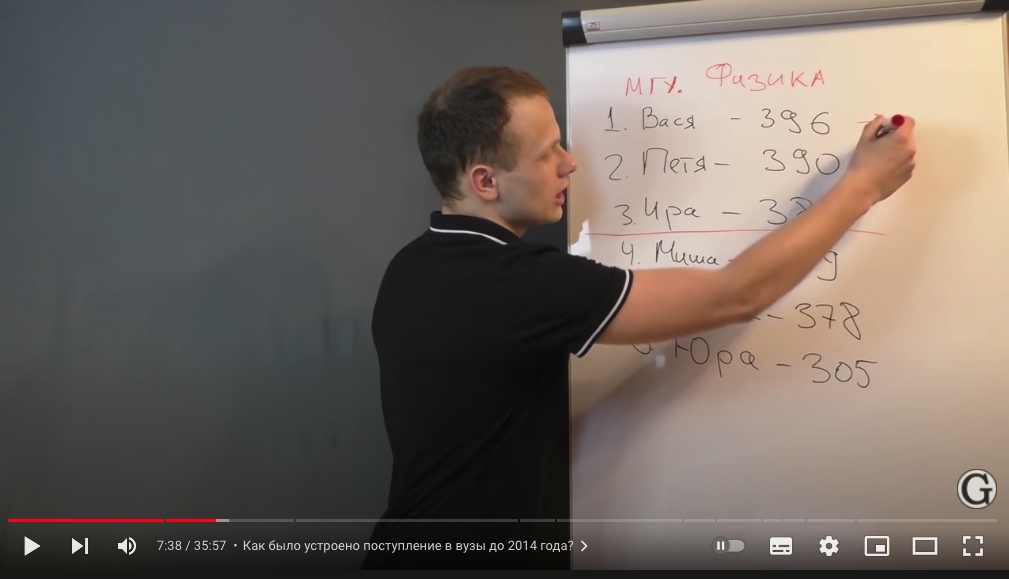 МГУ. Физика
1. Вася - 396
2. Петя - 390
3. Ира - 38
4. Миша - 9
- 378
Юра - 305
G
7:38 / 35:57 • Как было устроено поступление в вузы до 2014 года?